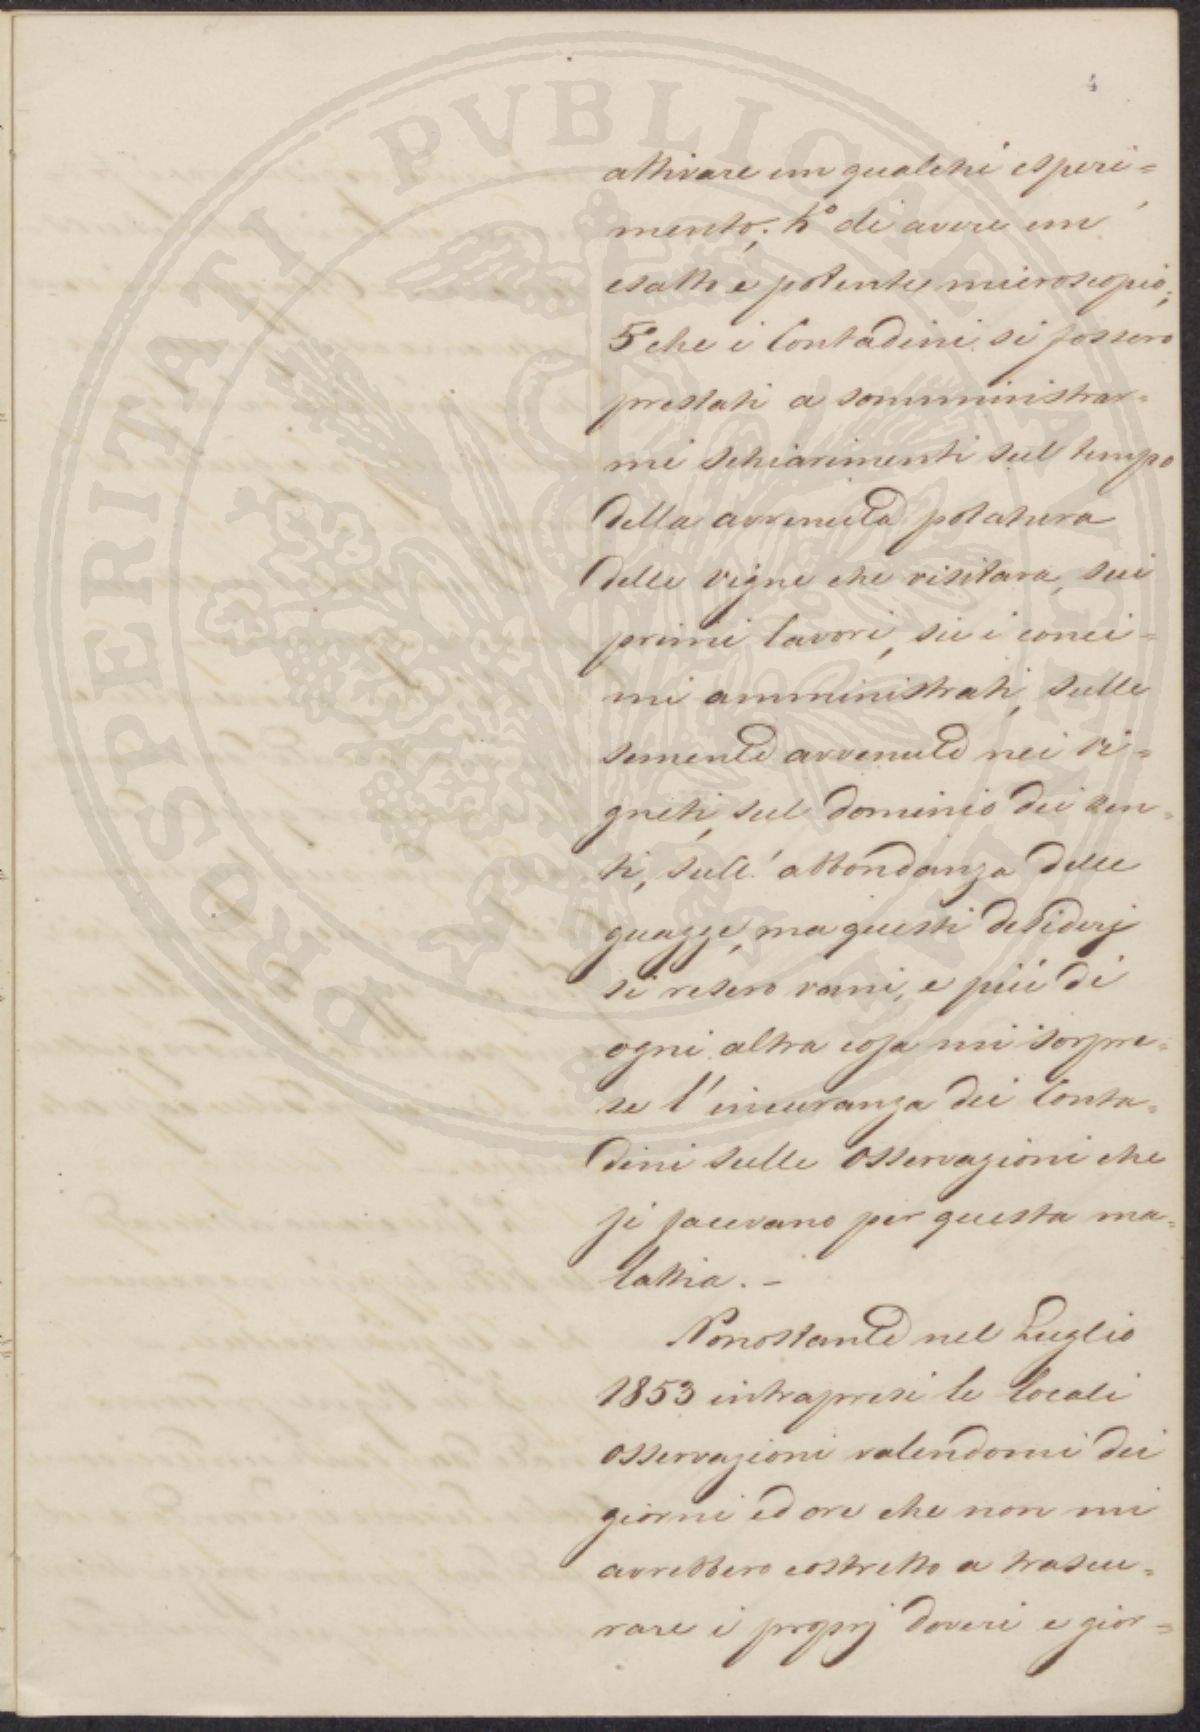 4
attivare un qualche esperi=
mento; 4° di avere un
esatto e potente microscopio;
5° che i Contadini si fossero
prestati a somministrar=
mi schiarimenti sul tempo
della avvenuta potatura
delle vigne che visitava, sui
primi lavori, sui i conci=
mi amministrati, sulle
semente avvenute nei Vi=
gneti, sul dominio dei ven=
ti, sull'abbondanza delle
guazze, ma questi desiderj
si resero vani, e più di
ogni altra cosa mi sorpre=
se l'incuranza dei Conta=
dini sulle osservazioni che
si facevano per questa ma=
lattia. -
Nonostante nel Luglio
1853 intrapresi le locali
osservazioni valendomi dei
giorni ed ore che non mi
avrebbero costretto a trascu=
rare i proprj doveri e gior=
PROSPERITATI PVBLICAE